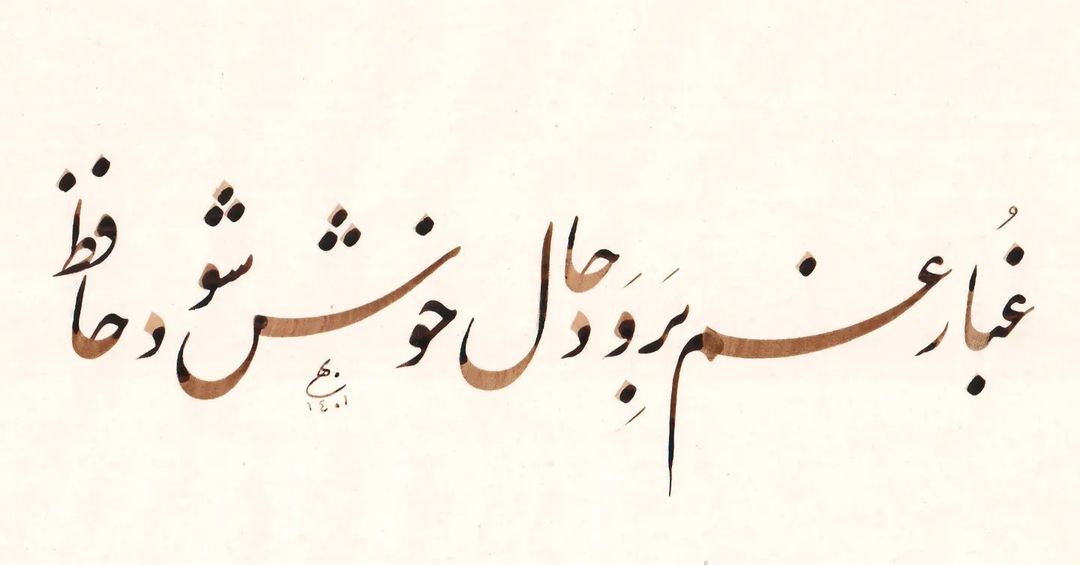 غُبار غم بِرَوَد حال خوش شود حافظ
۱٤۰۱